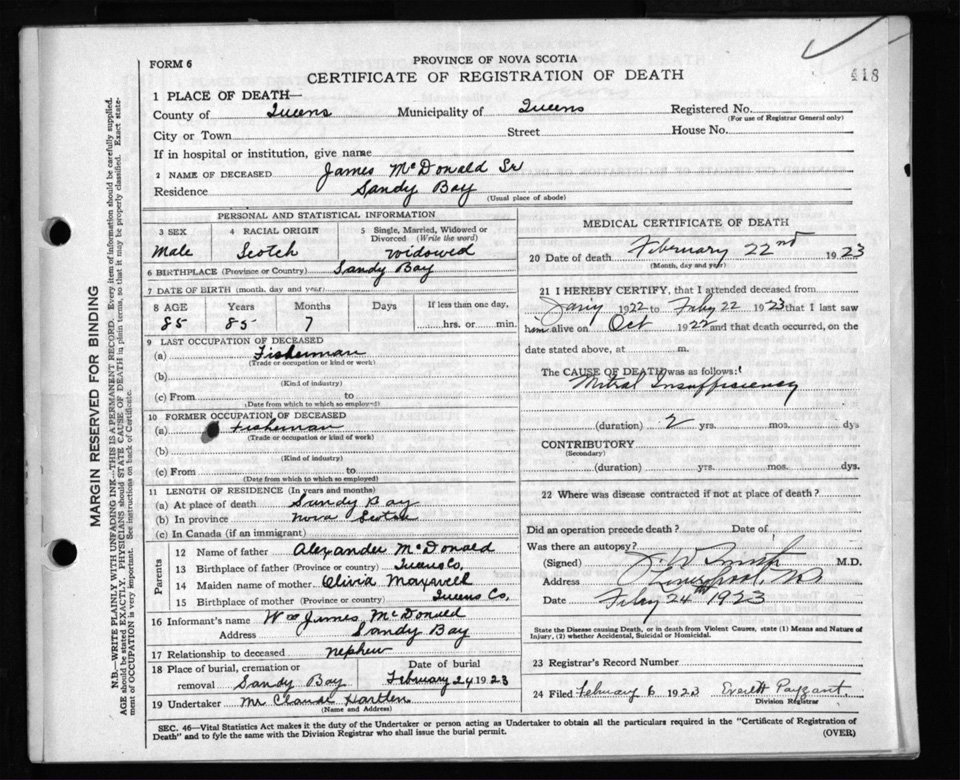 418
FORM 6
PROVINCE OF NOVA SCOTIA
CERTIFICATE OF REGISTRATION OF DEATH
1 PLACE OF DEATH—
County of Queens Municipality of Queens Registered No.
(For use of Registrar General only)
City or Town Street House No.
If in hospital or institution, give name
2 NAME OF DECEASED James McDonald Sr
Residence Sandy Bay
(Usual place of abode)
PERSONAL AND STATISTICAL INFORMATION
3 SEX 4 RACIAL ORIGIN 5 Single, Married, Widowed or Divorced (Write the word)
Male Scotch Widowed
6 BIRTHPLACE (Province or Country) Sandy Bay
7 DATE OF BIRTH (month, day and year)
8 AGE Years Months Days If less than one day,
85 85 7 hrs. or min.
9 LAST OCCUPATION OF DECEASED
(a) Fisherman
(Trade or occupation or kind of work)
(b)
(Kind of industry)
(c) From to
(Date from which to which so employed)
10 FORMER OCCUPATION OF DECEASED
(a) Fisherman
(Trade or occupation or kind of work)
(b)
(Kind of industry)
(c) From to
(Date from which to which so employed)
11 LENGTH OF RESIDENCE (In years and months)
(a) At place of death Sandy Bay
(b) In province Nova Scotia
(c) In Canada (if an immigrant)
Parents
12 Name of father Alexander McDonald
13 Birthplace of father (Province or country) Queens Co.
14 Maiden name of mother Olivia Maxwell
15 Birthplace of mother (Province or country) Queens Co.
16 Informant's name Wm James McDonald
Address Sandy Bay
17 Relationship to deceased nephew
18 Place of burial, cremation or Date of burial
removal Sandy Bay February 24 1923
19 Undertaker Mr Claude
(Name and Address)
MEDICAL CERTIFICATE OF DEATH
20 Date of death February 22nd 1923
(Month, day and year)
21 I HEREBY CERTIFY, that I attended deceased from
1922 to Feby 22 1923 that I last saw
him alive on Oct 1922 and that death occurred, on the
date stated above, at m.
The CAUSE OF DEATH was as follows:
Mitral Insufficiency
(duration) 2 yrs. mos. dys
CONTRIBUTORY
(Secondary)
(duration) yrs. mos. dys.
22 Where was disease contracted if not at place of death?
Did an operation precede death? Date of
Was there an autopsy?
(Signed) J. W Smith M.D.
Address Liverpool, NS
Date Feby 24th 1923
State the Disease causing Death, or in death from Violent Causes, state (1) Means and Nature of
Injury, (2) whether Accidental, Suicidal or Homicidal.
23 Registrar's Record Number
24 Filed February 6 1923 Everett
Division Registrar
SEC. 46—Vital Statistics Act makes it the duty of the Undertaker or person acting as Undertaker to obtain all the particulars required in the "Certificate of Registration of
Death" and to fyle the same with the Division Registrar who shall issue the burial permit. (OVER)
MARGIN RESERVED FOR BINDING
N.B.—WRITE PLAINLY WITH UNFADING INK—THIS IS A PERMANENT RECORD. Every item of information should be carefully supplied.
AGE should be stated EXACTLY. PHYSICIANS should STATE CAUSE OF DEATH in plain terms, so that it may be properly classified. Exact state-
ment of OCCUPATION is very important. See instructions on back of Certificate.